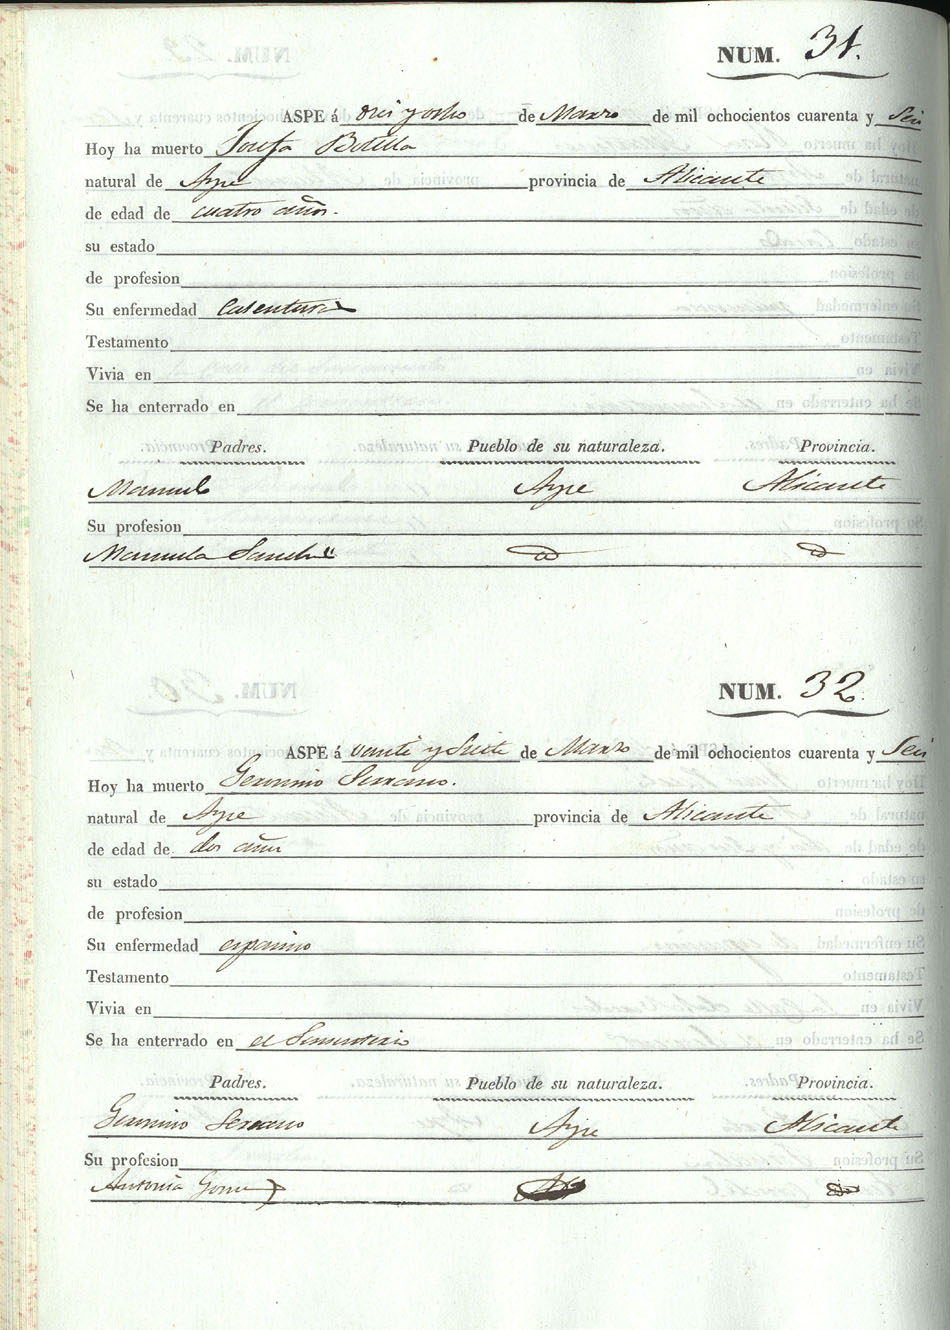 NUM. 31.
ASPE á diez y ocho de Marzo de mil ochocientos cuarenta y Seis
Hoy ha muerto Josefa Botella
natural de Aspe provincia de Alicante
de edad de cuatro años.
su estado
de profesion
Su enfermedad Calentura
Testamento
Vivia en
Se ha enterrado en
Padres. Pueblo de su naturaleza. Provincia.
Manuel Aspe Alicante
Su profesion
Manuela Sanchez
NUM. 32
ASPE á veinte y siete de Marzo de mil ochocientos cuarenta y Seis
Hoy ha muerto Geronimo Serrano.
natural de Aspe provincia de Alicante
de edad de dos años
su estado
de profesion
Su enfermedad espasmo
Testamento
Vivia en
Se ha enterrado en el Sementerio
Padres. Pueblo de su naturaleza. Provincia.
Geronimo Serrano Aspe Alicante
Su profesion
Antonia Gomez